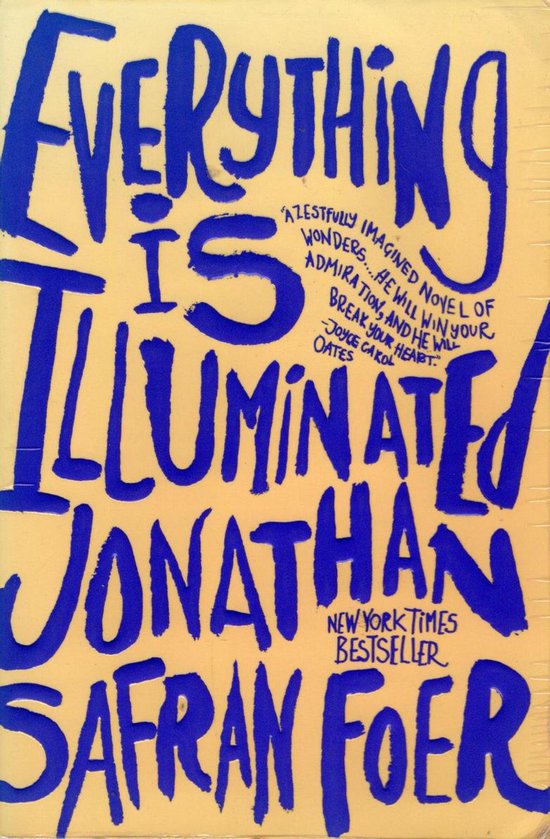 EVERYTHING
iS
"A ZESTFULLY IMAGINED NOVEL OF
WONDERS...HE WILL WIN YOUR
ADMIRATION, AND HE WILL
BREAK YOUR HEART."
-JOYCE CAROL
OATES
ILLUMiNATEd
JONATHAN
NEW YORK TIMES
BESTSELLER
SAFRAN FOER